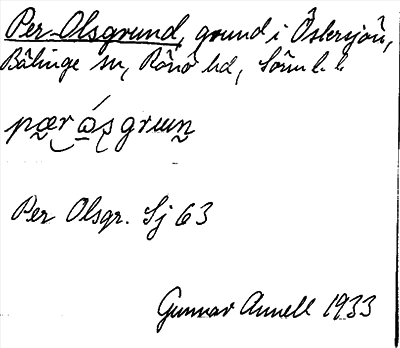 Per-Olsgrund, grund i Östersjön,
Bälinge sn, Rönö hd, Sörml. l.
Per Olsgr. Sj 63
Gunnar Annell 1933